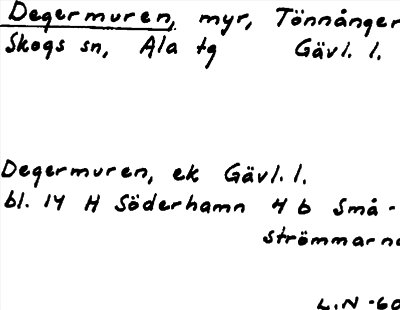 Degermuren, myr, Tönnånger
Skogs sn, Ala tg Gävl. l.
Degermuren, ek Gävl. l.
bl. 14 H Söderhamn 4 b Små-
strömmarna
L.N -60